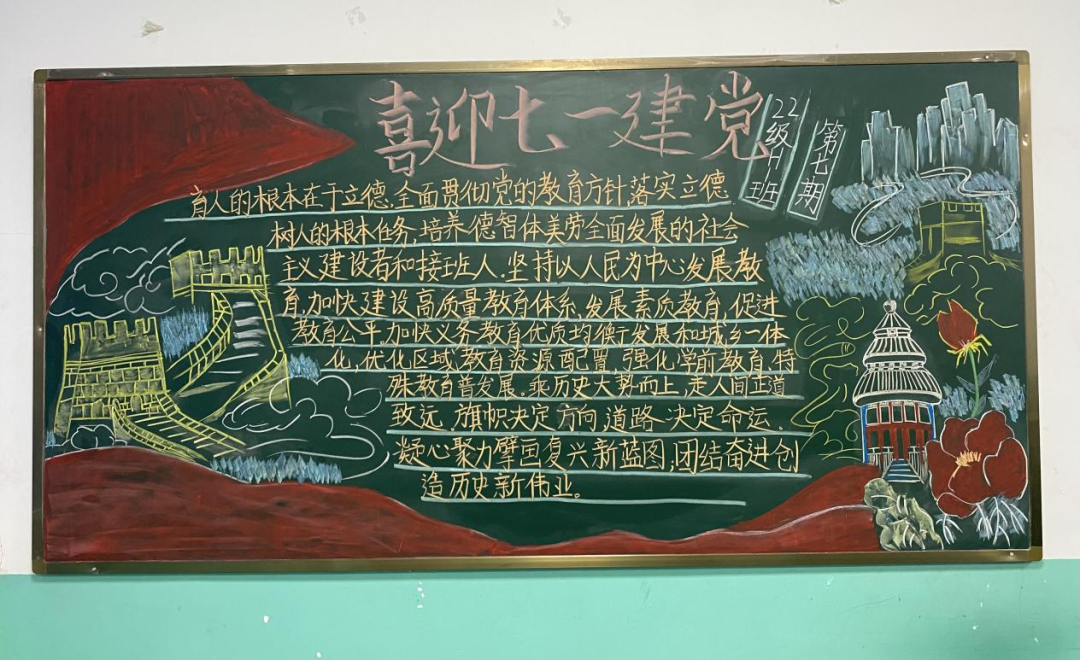 喜迎七一建党
22级H班
第七期
育人的根本在于立德.全面贯彻党的教育方针,落实立德.
树人的根本任务,培养德智体美劳全面发展的社会
主义建设者和接班人.坚持以人民为中心发展教
育,加快建设高质量教育体系,发展素质教育,促进
教育公平,加快义务教育优质均衡发展和城乡一体
化,优化区域教育资源配置,强化学前教育,特
殊教育普发展.乘历史大势而上,走人间正道
致远.旗帜决定方向,道路决定命运.
凝心聚力擘画复兴新蓝图,团结奋进创
造历史新伟业。